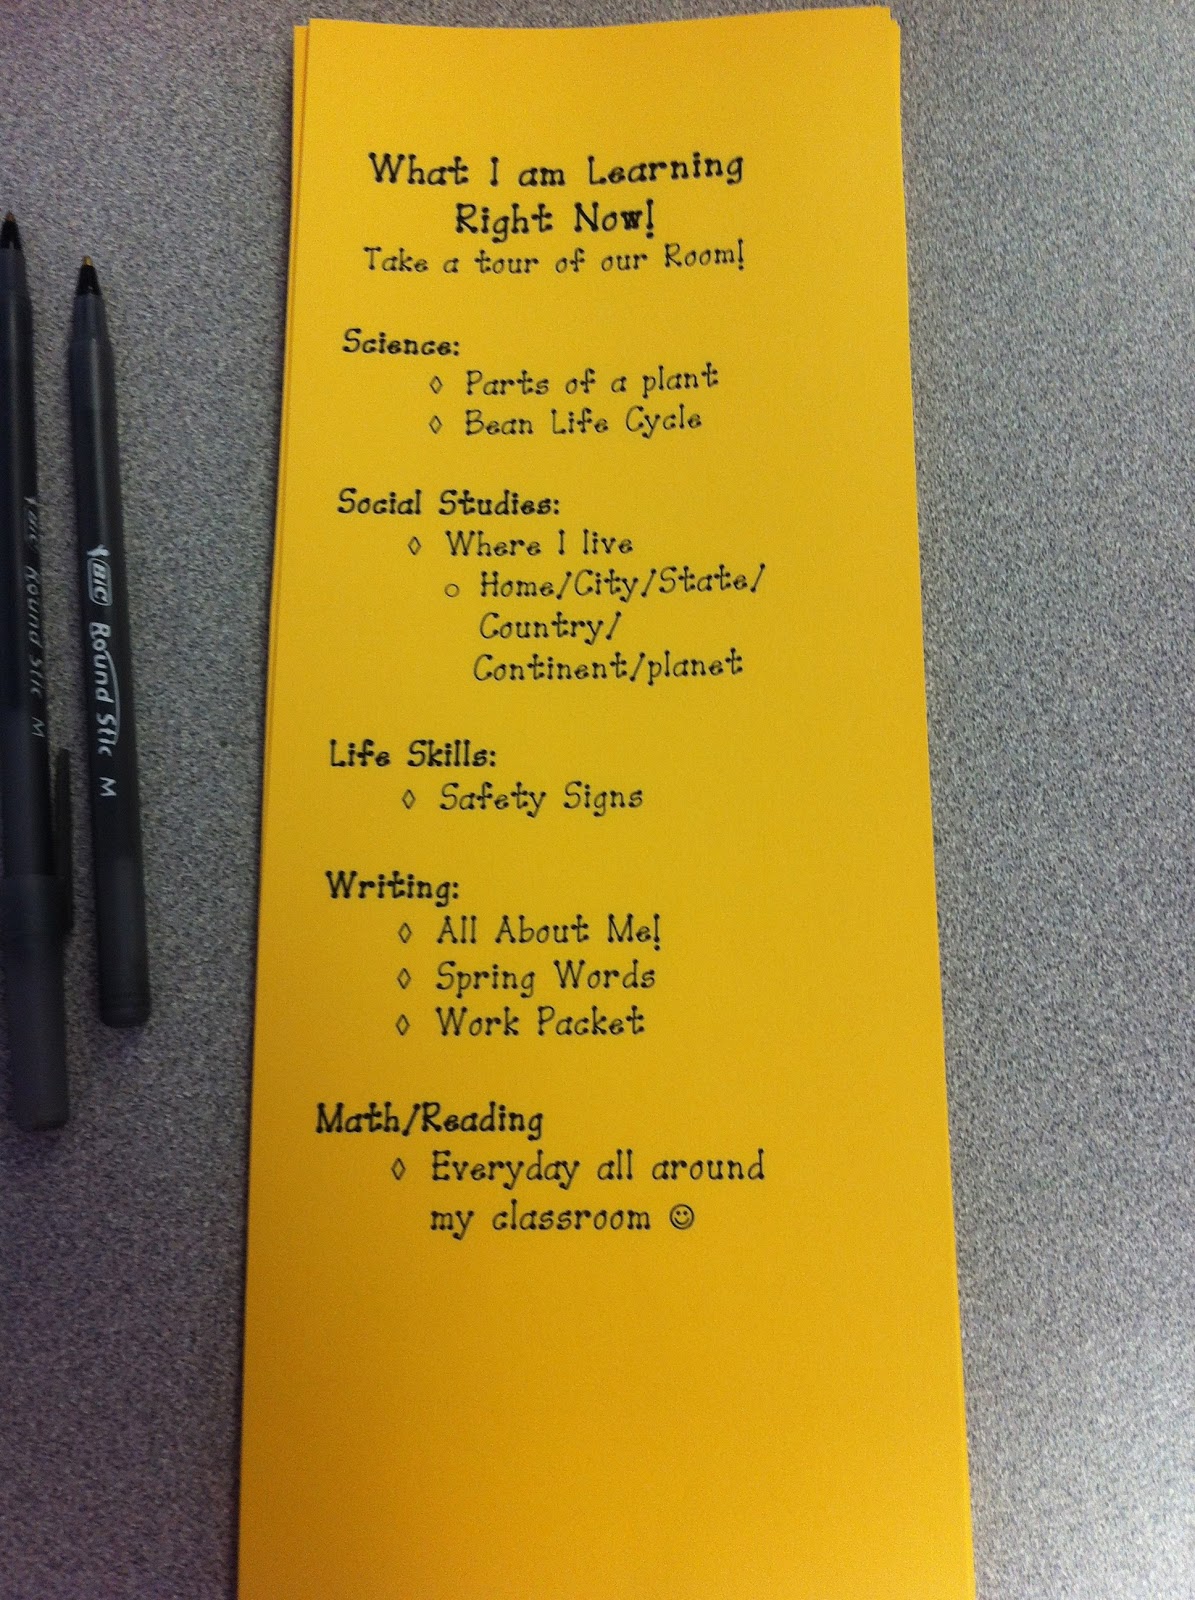 What I am Learning
Right Now!
Take a tour of our Room!
Science:
◊ Parts of a plant
◊ Bean Life Cycle
Social Studies:
◊ Where I live
○ Home/City/State/
Country/
Continent/planet
Life Skills:
◊ Safety Signs
Writing:
◊ All About Me!
◊ Spring Words
◊ Work Packet
Math/Reading
◊ Everyday all around
my classroom ☺
BIC Round Stic M
BIC Round Stic M